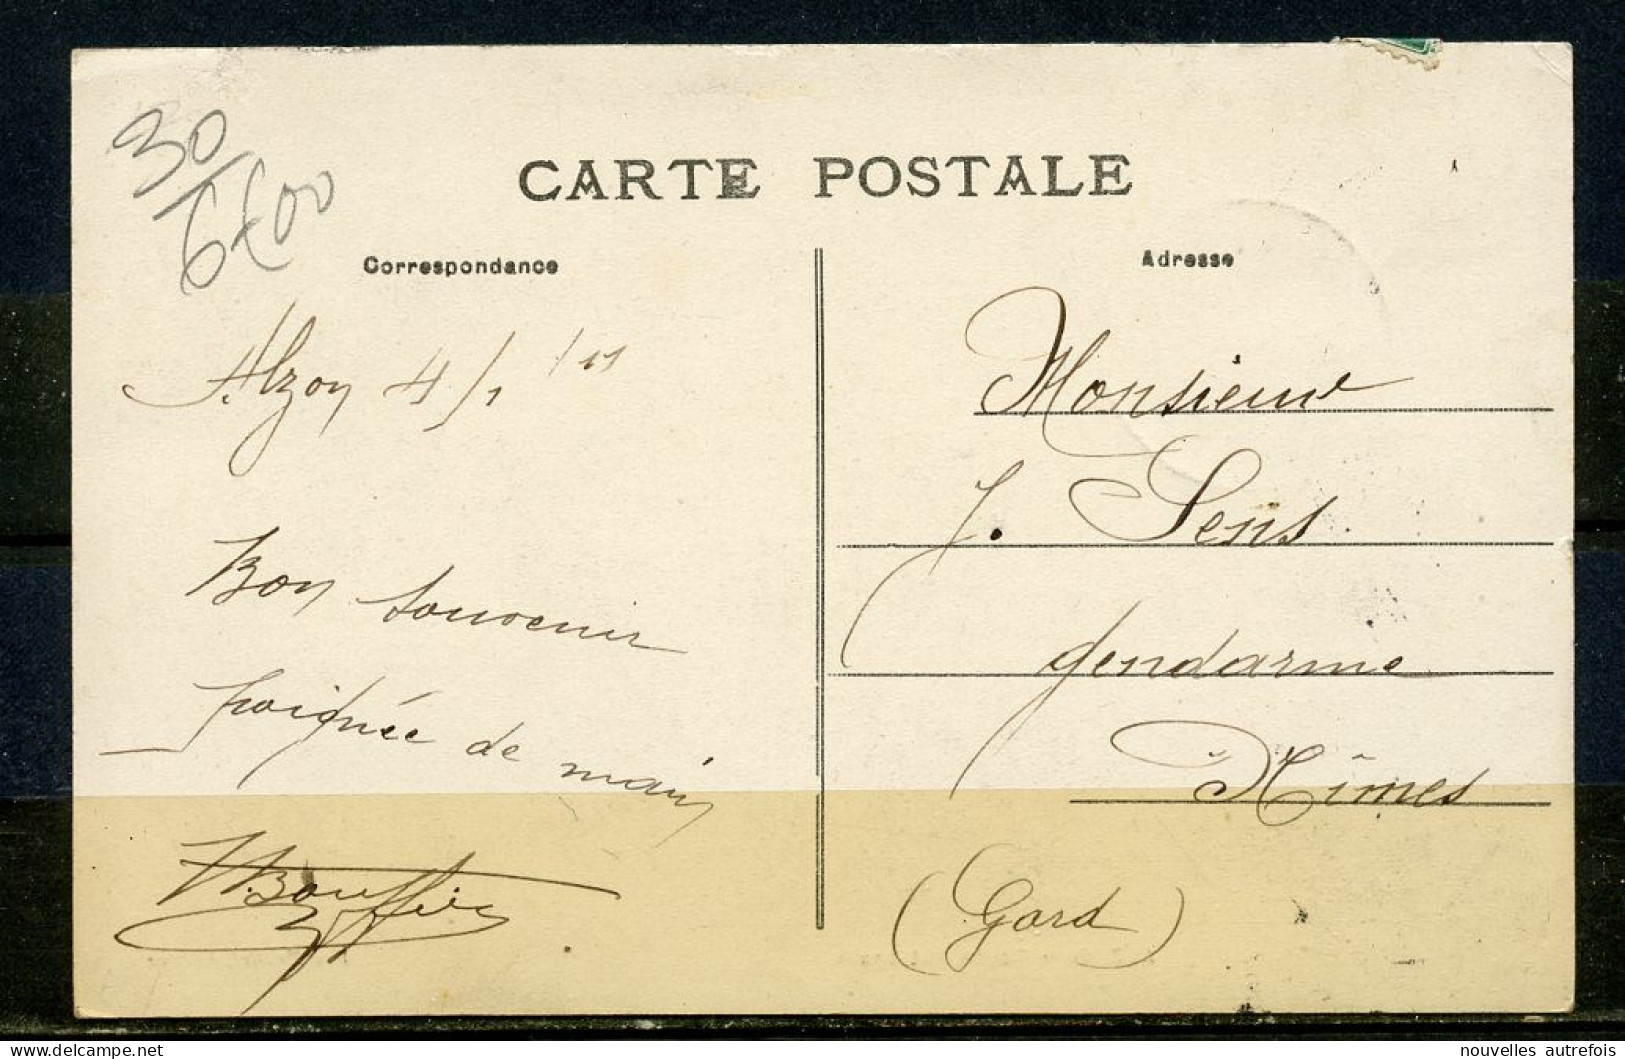 30
6€00
CARTE POSTALE
Correspondance
Adresse
Alzon 4/1/11
Bon souvenir
poignée de main
Bouffier
Monsieur
J. Sens
gendarme
Nîmes
(Gard)
nouvelles autrefois